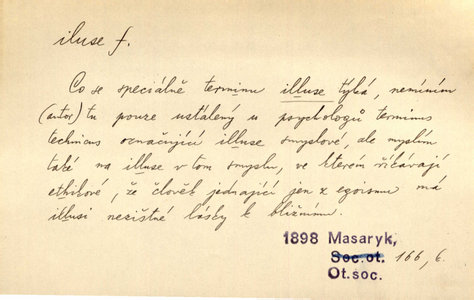 iluse f.
Co se speciálně terminu illuse týká, nemíním
(autor) tu pouze ustálený u psychologů terminus
technicus označující illuse smyslové, ale myslím
také na illuse v tom smyslu, ve kterém říkávají
ethikové, že člověk jednající jen z egoismu má
illusi nezištné lásky k bližnímu.
1898 Masaryk,
Soc.ot. 166, 6.
Ot.soc.